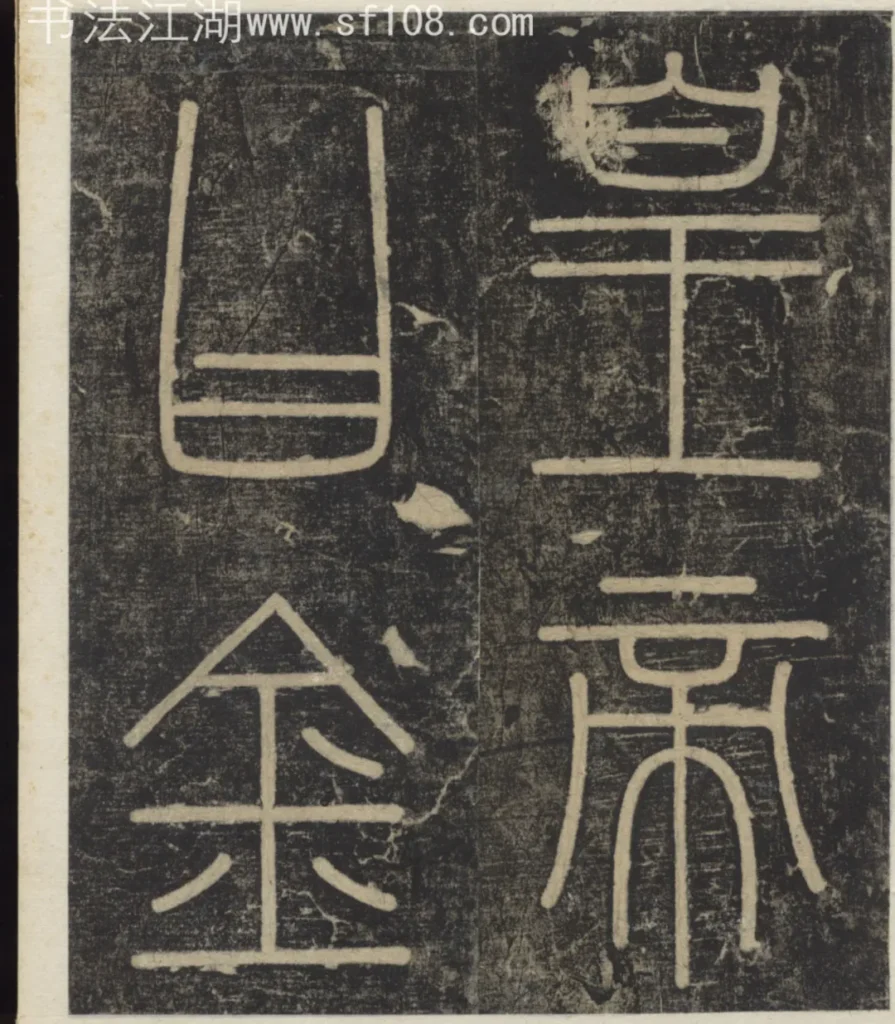 书法江湖www.sf108.com
皇帝
曰金